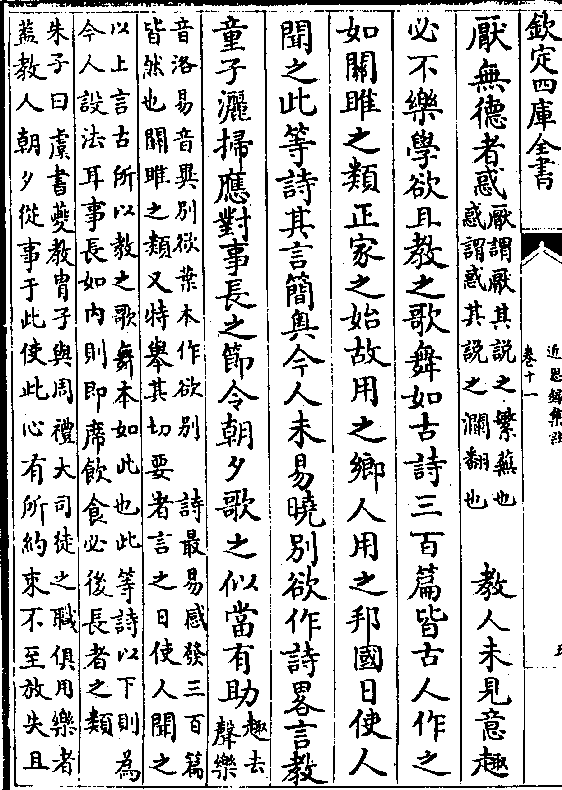 欽定四庫全書
近思録集註
卷十一
五
厭無德者惑厭謂厭其說之繁蕪也惑謂惑其說之瀾翻也 教人未見意趣
必不樂學欲且教之歌舞如古詩三百篇皆古人作之
如關雎之類正家之始故用之鄉人用之邦國日使人
聞之此等詩其言簡奥今人未易曉別欲作詩畧言教
童子灑掃應對事長之節令朝夕歌之似當有助趣去聲樂
音洛易音異別欲葉本作欲別 詩最易感發三百篇
皆然也關雎之類又特舉其切要者言之日使人聞之
以上言古所以教之歌舞本如此也此等詩以下則為
今人設法耳事長如内則即席飲食必後長者之類
朱子曰虞書夔教胄子與周禮大司徒之職俱用樂者
蓋教人朝夕從事于此使此心有所約束不至放失且